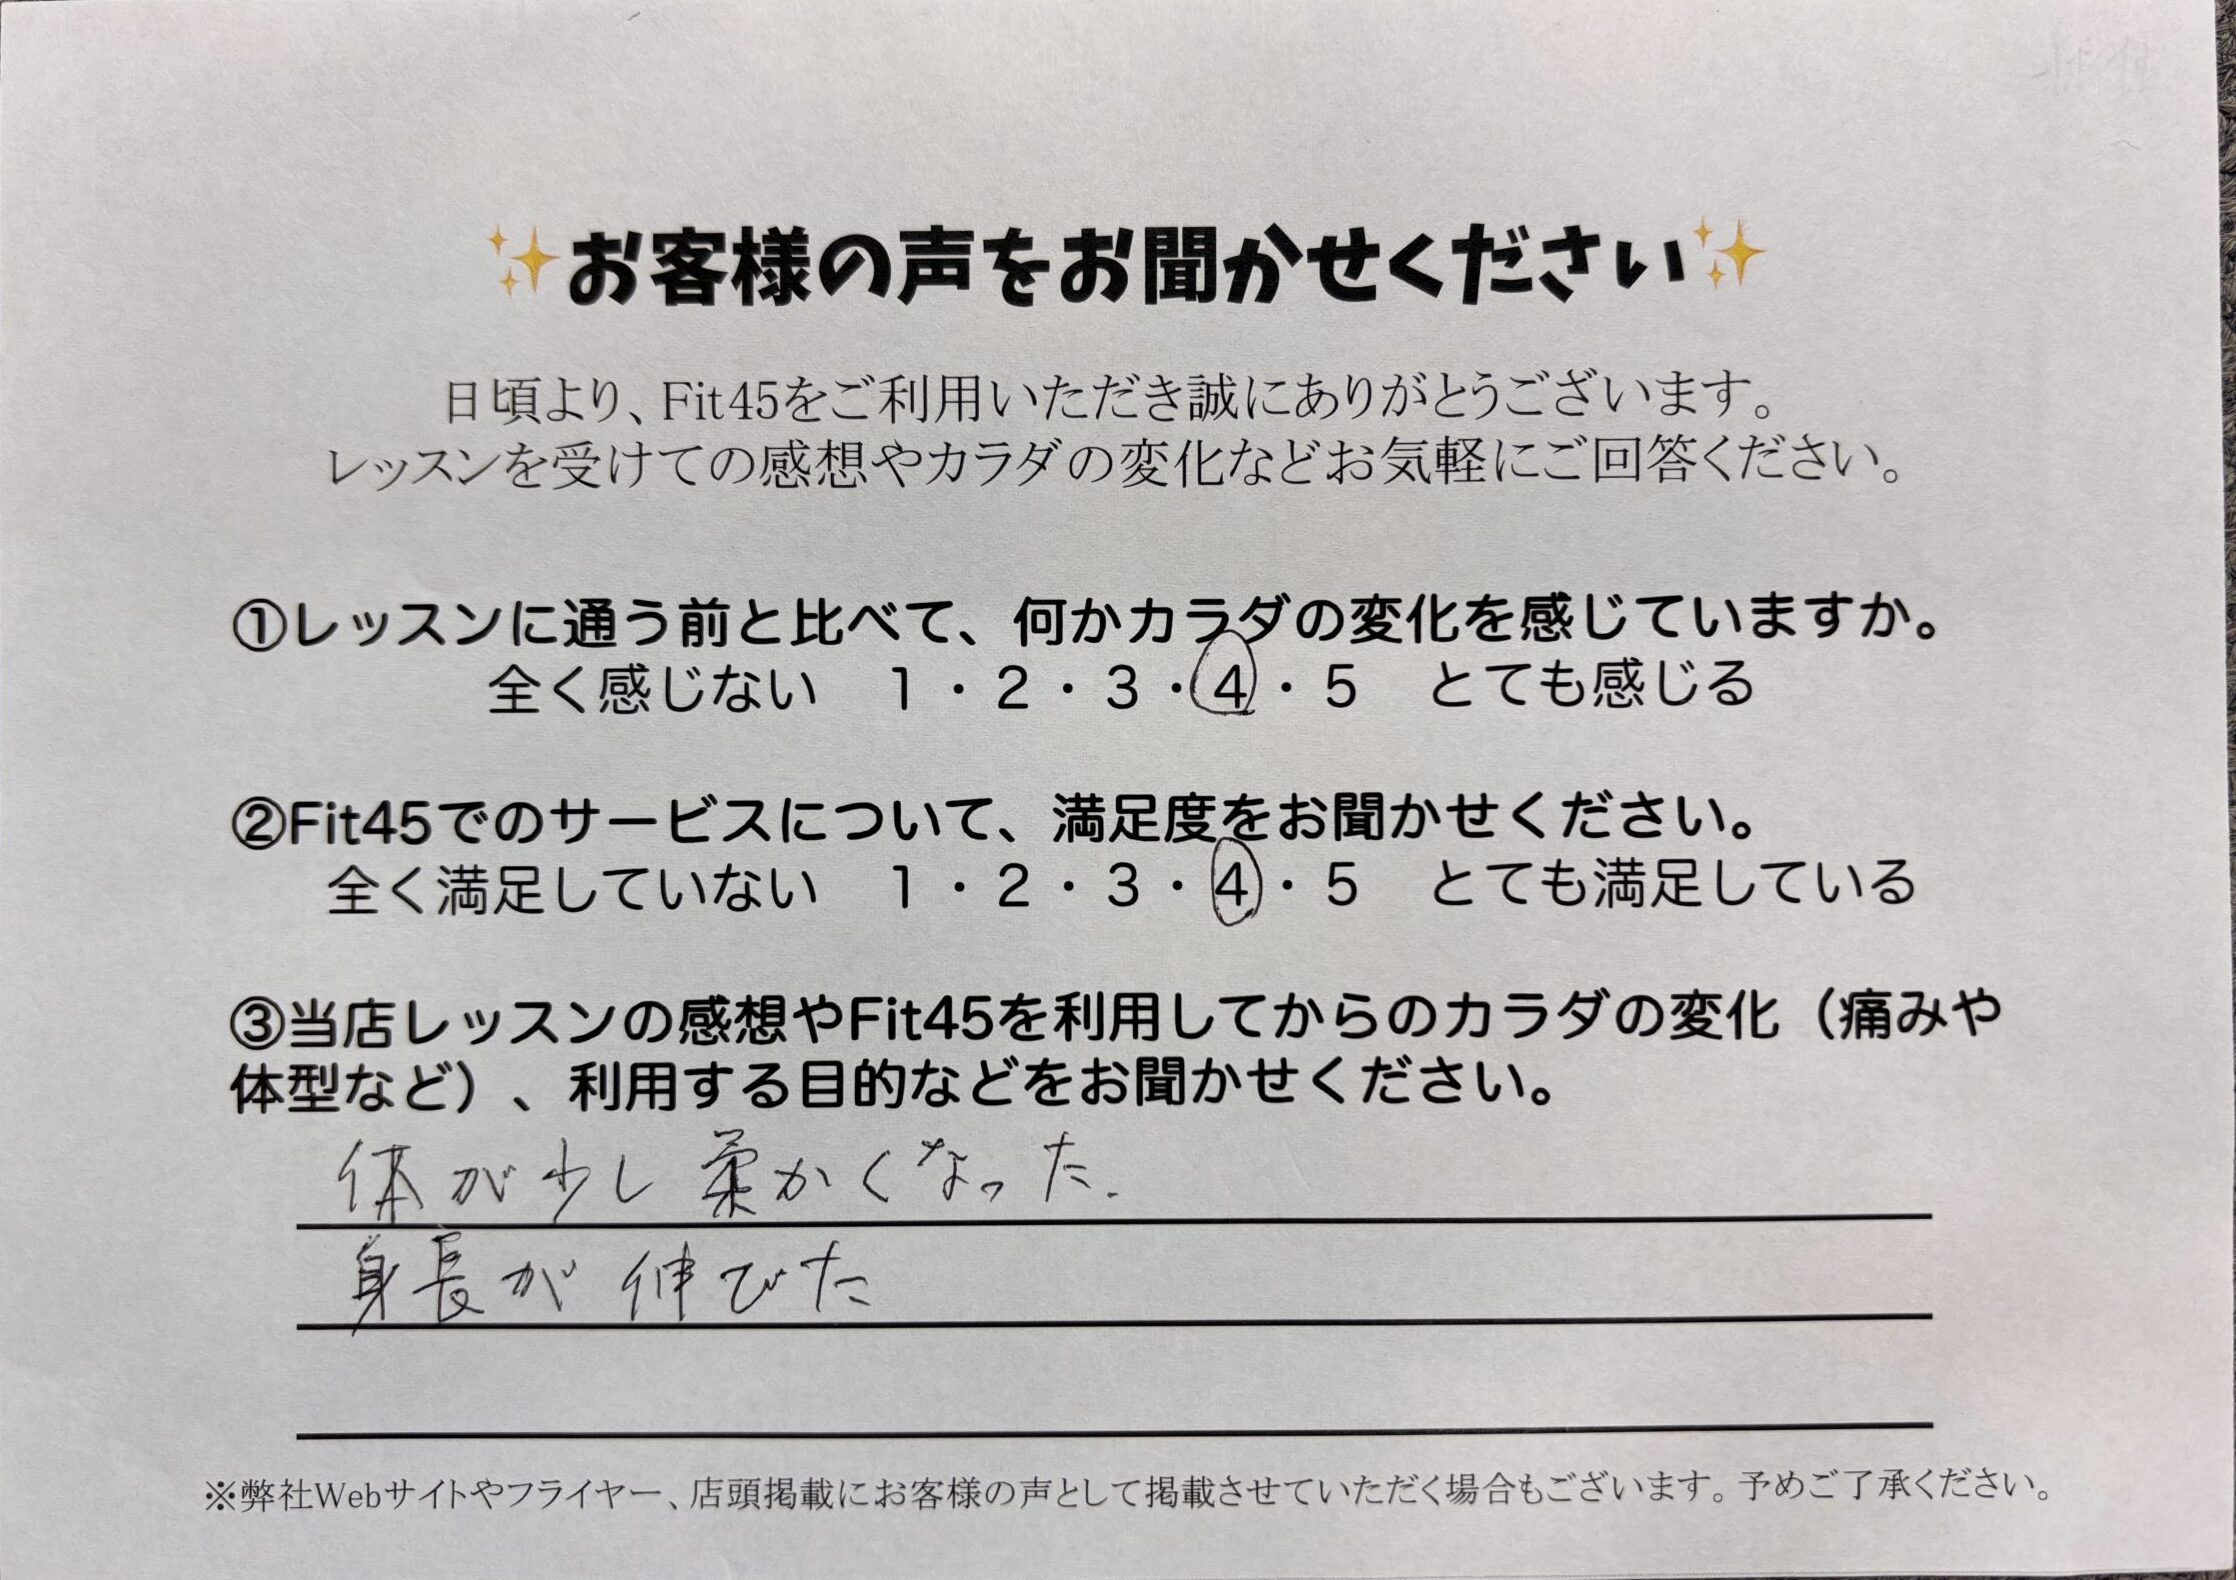 ✨お客様の声をお聞かせください✨
日頃より、Fit45をご利用いただき誠にありがとうございます。
レッスンを受けての感想やカラダの変化などお気軽にご回答ください。
①レッスンに通う前と比べて、何かカラダの変化を感じていますか。
全く感じない 1・2・3・4・5 とても感じる
②Fit45でのサービスについて、満足度をお聞かせください。
全く満足していない 1・2・3・4・5 とても満足している
③当店レッスンの感想やFit45を利用してからのカラダの変化（痛みや
体型など）、利用する目的などをお聞かせください。
体が少し柔かくなった.
身長が伸びた
※弊社Webサイトやフライヤー、店頭掲載にお客様の声として掲載させていただく場合もございます。予めご了承ください。